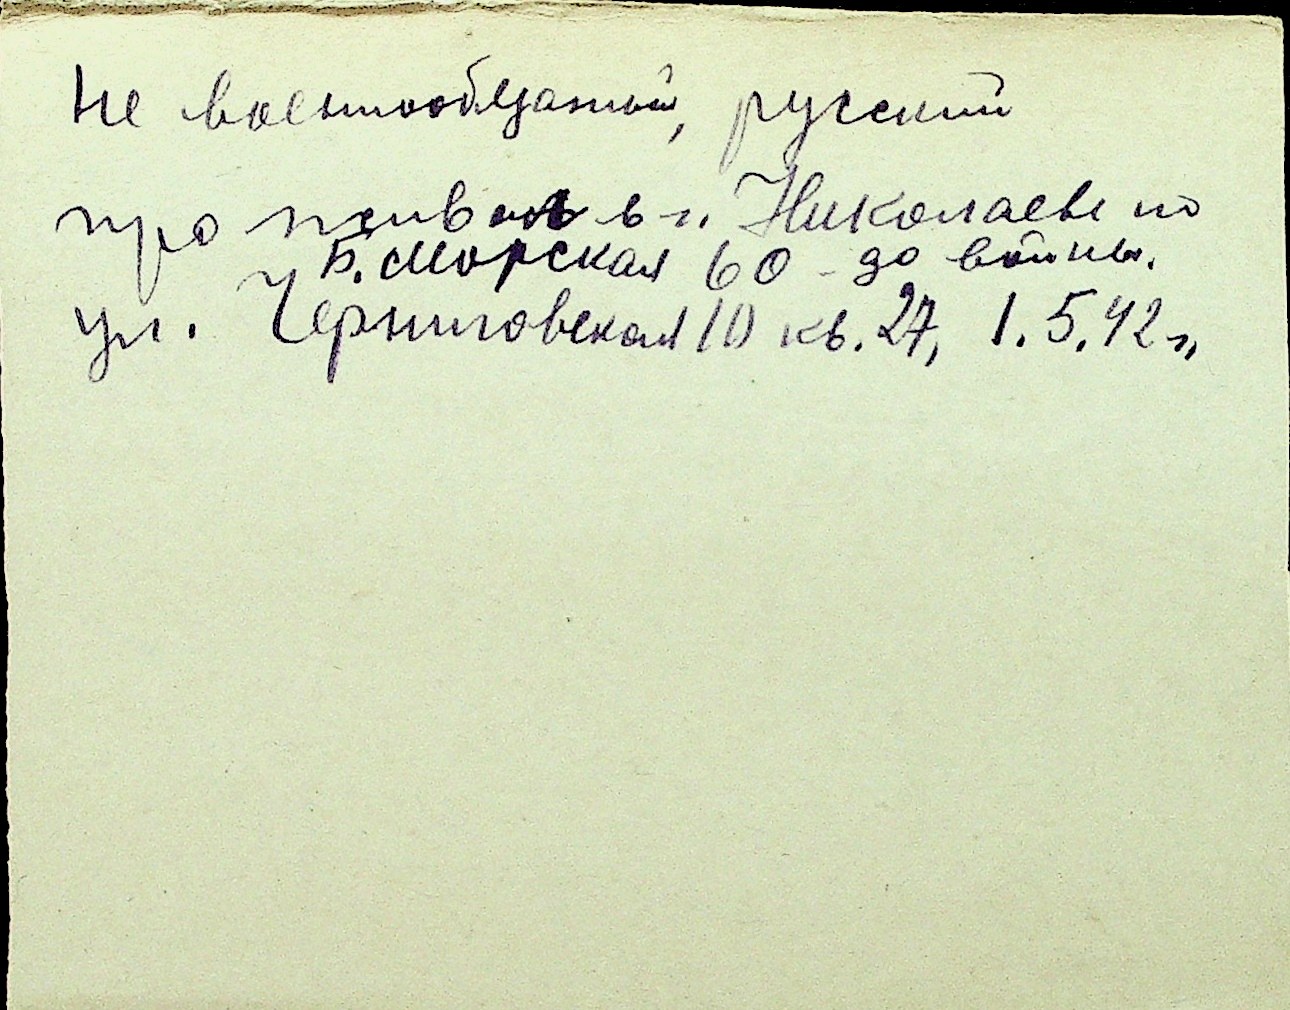 Не военнообязаный, русский
проживал в г. Николаеве по
Б. Морская 60 - до войны.
ул. Черниговская 10 кв. 27, 1.5.42 г,